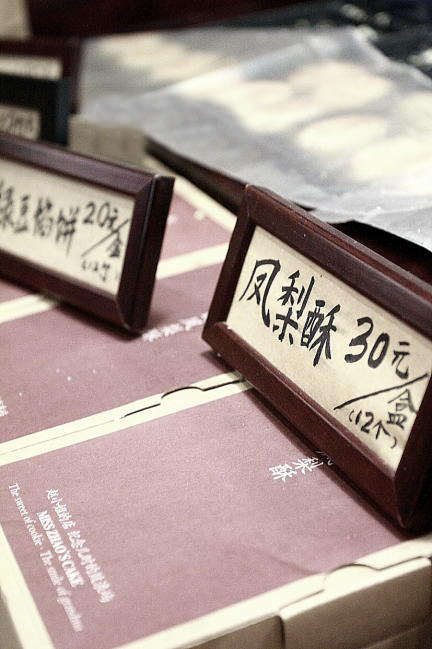 绿豆馅饼 20元/盒
(12个)
凤梨酥 30元/盒
(12个)
凤梨酥
赵小姐的店
MISS ZHAO'S CAKE
The sweet of cookie · The smile of grandma